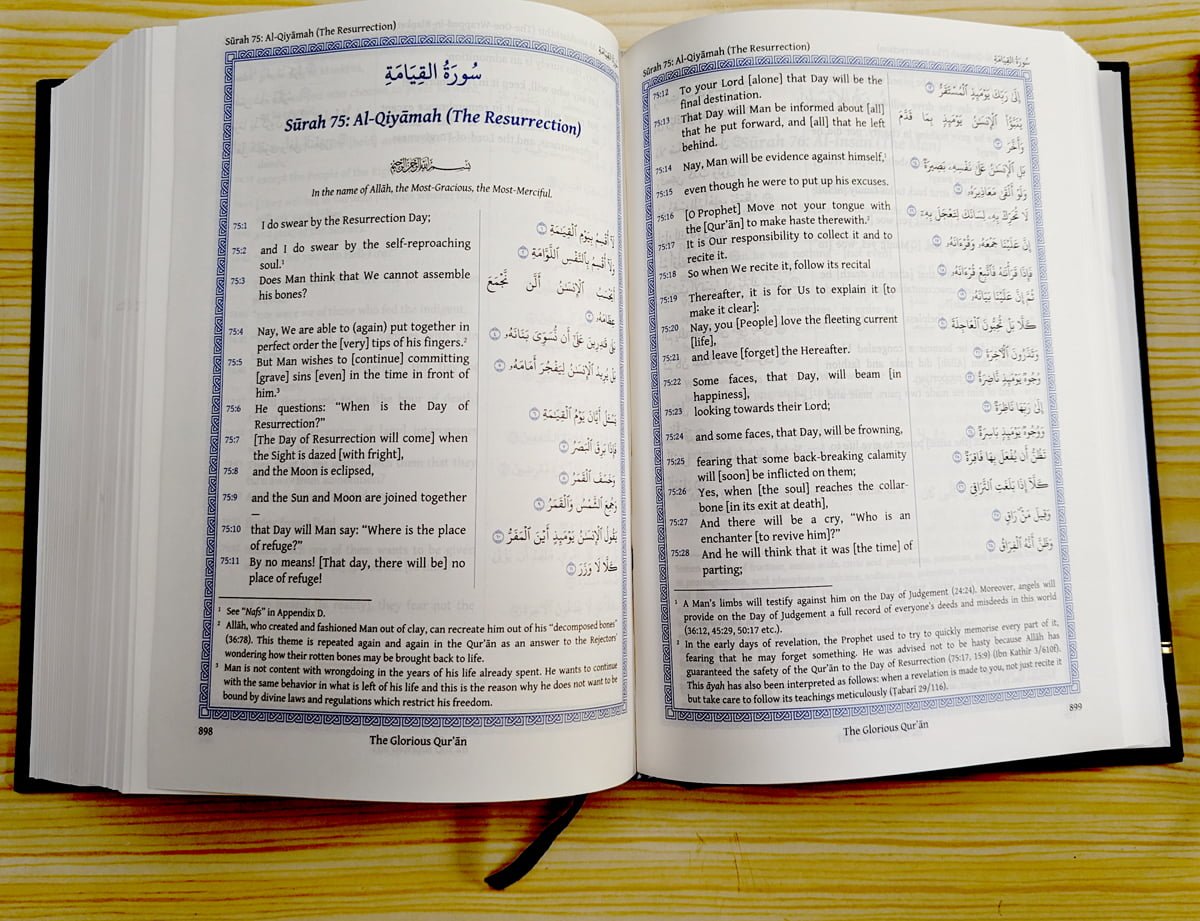 Sūrah 75: Al-Qiyāmah (The Resurrection)
سُورَةُ القِيَامَةِ
Sūrah 75: Al-Qiyāmah (The Resurrection)
In the name of Allāh, the Most-Gracious, the Most-Merciful.
75:1 I do swear by the Resurrection Day;
لَآ أُقْسِمُ بِيَوْمِ ٱلْقِيَٰمَةِ ١
75:2 and I do swear by the self-reproaching
soul.¹
وَلَآ أُقْسِمُ بِٱلنَّفْسِ ٱللَّوَّامَةِ ٢
75:3 Does Man think that We cannot assemble
his bones?
أَيَحْسَبُ ٱلْإِنسَٰنُ أَلَّن نَّجْمَعَ
عِظَامَهُۥ ٣
75:4 Nay, We are able to (again) put together in
perfect order the [very] tips of his fingers.²
بَلَىٰ قَٰدِرِينَ عَلَىٰٓ أَن نُّسَوِّىَ بَنَانَهُۥ ٤
75:5 But Man wishes to [continue] committing
[grave] sins [even] in the time in front of
him.³
بَلْ يُرِيدُ ٱلْإِنسَٰنُ لِيَفْجُرَ أَمَامَهُۥ ٥
75:6 He questions: “When is the Day of
Resurrection?”
يَسْـَٔلُ أَيَّانَ يَوْمُ ٱلْقِيَٰمَةِ ٦
75:7 [The Day of Resurrection will come] when
the Sight is dazed [with fright],
فَإِذَا بَرِقَ ٱلْبَصَرُ ٧
75:8 and the Moon is eclipsed,
وَخَسَفَ ٱلْقَمَرُ ٨
75:9 and the Sun and Moon are joined together
—
وَجُمِعَ ٱلشَّمْسُ وَٱلْقَمَرُ ٩
75:10 that Day will Man say: “Where is the place
of refuge?”
يَقُولُ ٱلْإِنسَٰنُ يَوْمَئِذٍ أَيْنَ ٱلْمَفَرُّ ١٠
75:11 By no means! [That day, there will be] no
place of refuge!
كَلَّا لَا وَزَرَ ١١
¹ See “Nafs” in Appendix D.
² Allāh, who created and fashioned Man out of clay, can recreate him out of his “decomposed bones”
(36:78). This theme is repeated again and again in the Qur’ān as an answer to the Rejectors’
wondering how their rotten bones may be brought back to life.
³ Man is not content with wrongdoing in the years of his life already spent. He wants to continue
with the same behavior in what is left of his life and this is the reason why he does not want to be
bound by divine laws and regulations which restrict his freedom.
898
The Glorious Qur’ān
Sūrah 75: Al-Qiyāmah (The Resurrection)
سُورَةُ القِيَامَةِ
75:12 To your Lord [alone] that Day will be the
final destination.
إِلَىٰ رَبِّكَ يَوْمَئِذٍ ٱلْمُسْتَقَرُّ ١٢
75:13 That Day will Man be informed about [all]
that he put forward, and [all] that he left
behind.
يُنَبَّؤُا۟ ٱلْإِنسَٰنُ يَوْمَئِذٍۭ بِمَا قَدَّمَ
وَأَخَّرَ ١٣
75:14 Nay, Man will be evidence against himself,¹
بَلِ ٱلْإِنسَٰنُ عَلَىٰ نَفْسِهِۦ بَصِيرَةٌ ١٤
75:15 even though he were to put up his excuses.
وَلَوْ أَلْقَىٰ مَعَاذِيرَهُۥ ١٥
75:16 [O Prophet] Move not your tongue with
the [Qur’ān] to make haste therewith.²
لَا تُحَرِّكْ بِهِۦ لِسَانَكَ لِتَعْجَلَ بِهِۦٓ ١٦
75:17 It is Our responsibility to collect it and to
recite it.
إِنَّ عَلَيْنَا جَمْعَهُۥ وَقُرْءَانَهُۥ ١٧
75:18 So when We recite it, follow its recital
فَإِذَا قَرَأْنَٰهُ فَٱتَّبِعْ قُرْءَانَهُۥ ١٨
75:19 Thereafter, it is for Us to explain it [to
make it clear]:
ثُمَّ إِنَّ عَلَيْنَا بَيَانَهُۥ ١٩
75:20 Nay, you [People] love the fleeting current
[life],
كَلَّا بَلْ تُحِبُّونَ ٱلْعَاجِلَةَ ٢٠
75:21 and leave [forget] the Hereafter.
وَتَذَرُونَ ٱلْءَاخِرَةَ ٢١
75:22 Some faces, that Day, will beam [in
happiness],
وُجُوهٌ يَوْمَئِذٍ نَّاضِرَةٌ ٢٢
75:23 looking towards their Lord;
إِلَىٰ رَبِّهَا نَاظِرَةٌ ٢٣
75:24 and some faces, that Day, will be frowning,
وَوُجُوهٌ يَوْمَئِذٍۭ بَاسِرَةٌ ٢٤
75:25 fearing that some back-breaking calamity
will [soon] be inflicted on them;
تَظُنُّ أَن يُفْعَلَ بِهَا فَاقِرَةٌ ٢٥
75:26 Yes, when [the soul] reaches the collar-
bone [in its exit at death],
كَلَّآ إِذَا بَلَغَتِ ٱلتَّرَاقِىَ ٢٦
75:27 And there will be a cry, “Who is an
enchanter [to revive him]?”
وَقِيلَ مَنْ رَاقٍ ٢٧
75:28 And he will think that it was [the time] of
parting;
وَظَنَّ أَنَّهُ ٱلْفِرَاقُ ٢٨
¹ A Man’s limbs will testify against him on the Day of Judgement (24:24). Moreover, angels will
provide on the Day of Judgement a full record of everyone’s deeds and misdeeds in this world
(36:12, 45:29, 50:17 etc.).
² In the early days of revelation, the Prophet used to try to quickly memorise every part of it,
fearing that he may forget something. He was advised not to be hasty because Allāh has
guaranteed the safety of the Qur’ān to the Day of Resurrection (75:17, 15:9) (Ibn Kathir 3/610f).
This āyah has also been interpreted as follows: when a revelation is made to you, not just recite it
but take care to follow its teachings meticulously (Tabari 29/116).
899
The Glorious Qur’ān